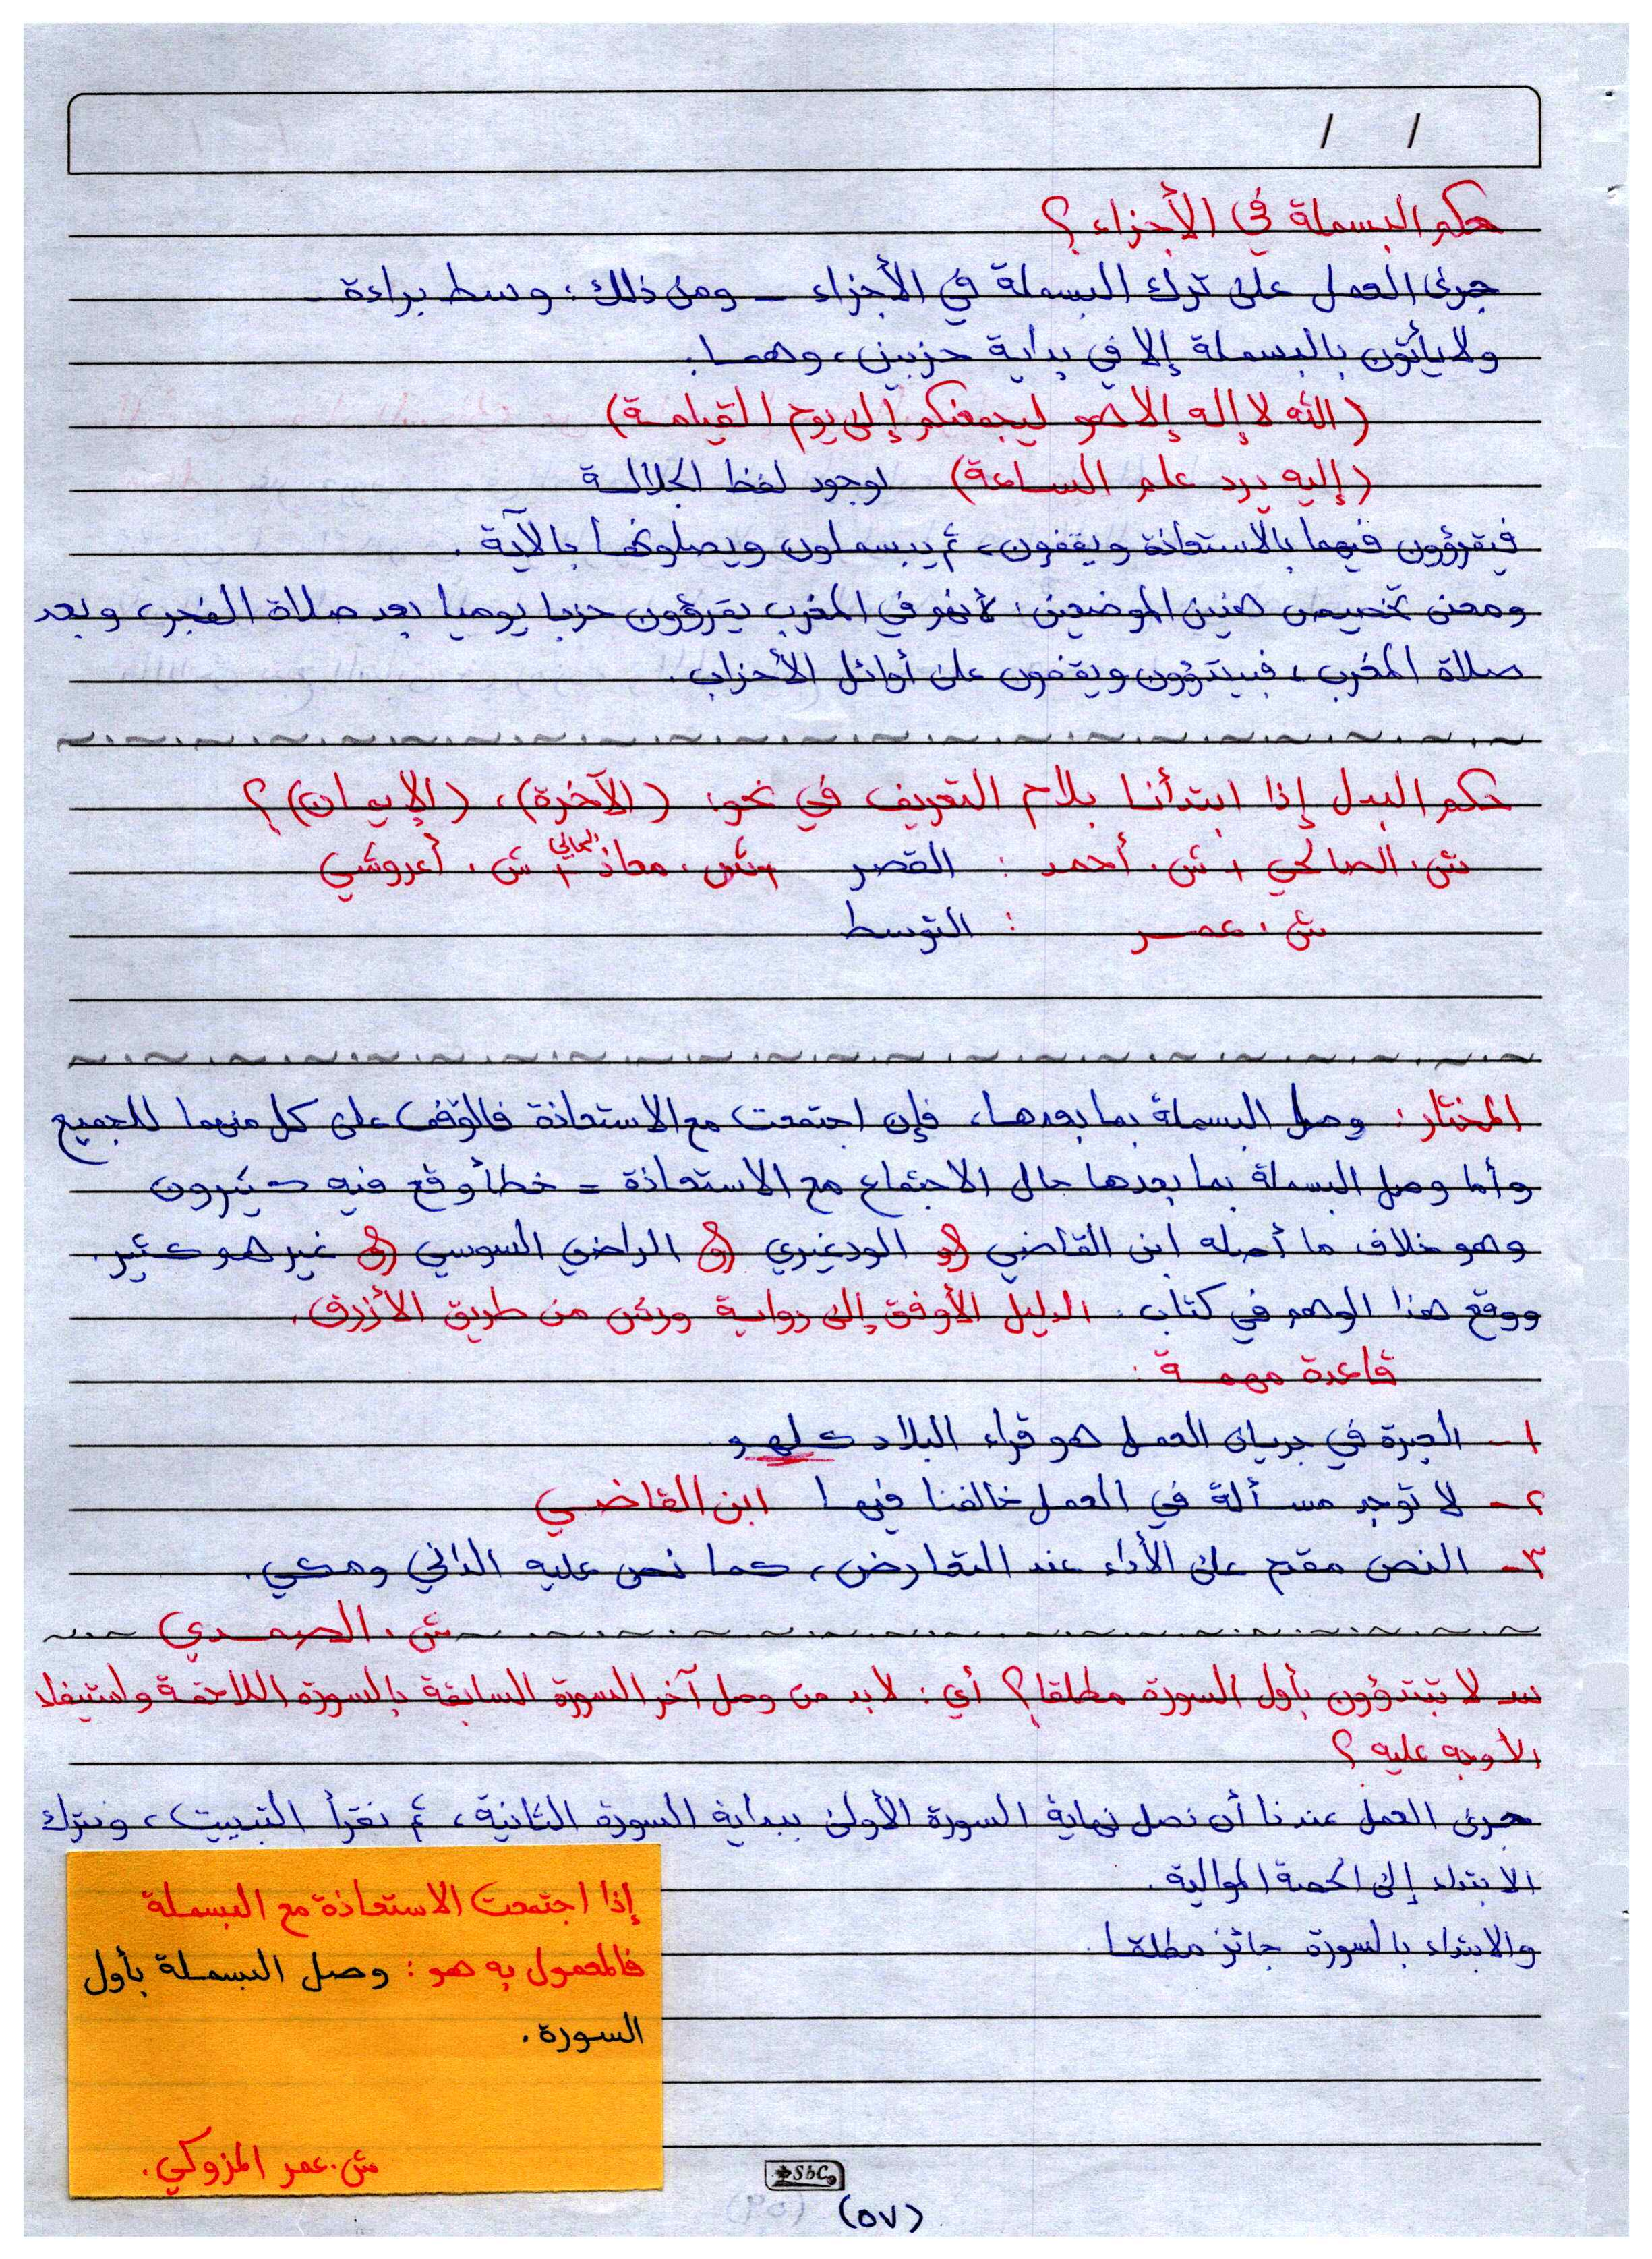 حكم البسملة في الأجزاء ؟
جرى العمل على ترك البسملة في الأجزاء - ومن ذلك : وسط براءة -
ولا يأتون بالبسملة إلا في بداية حزبين ، وهما :
(الله لا إله إلا هو ليجمعنكم إلى يوم القيامة)
(إليه يرد علم الساعة) لوجود لفظ الجلالة
فيقرؤون فيهما بالاستعاذة ويقفون ، ثم يبسملون ويصلونها بالآية .
ومعنى تخصيص هذين الموضعين : لأنهم في المغرب يقرؤون حزبا يوميا بعد صلاة الفجر ، وبعد
صلاة المغرب ، فيبتدؤون ويقفون على أوائل الأحزاب .
حكم البدل إذا ابتدأنا بلام التعريف في نحو : (الآخرة) ، (الإيمان) ؟
ش . الصالحي ، ش . أحمد : القصر ، ش . معاذ ، ش . أعروشي
ش . عمر : التوسط
المختار : وصل البسملة بما بعدها ، فإن اجتمعت مع الاستعاذة فالوقف على كل منهما للجميع
وأما وصل البسملة بما بعدها حال الاجتماع مع الاستعاذة = خطأ وقع فيه كثيرون
وهو خلاف ما أصله ابن القاضي و الودغيري و الراضي السوسي و غيرهم كثير .
ووقع هذا الوهم في كتاب : الدليل الأوفق إلى رواية ورش من طريق الأزرق .
قاعدة مهمة :
١- العبرة في جريان العمل هو قراء البلاد كلهم
٢- لا توجد مسألة في العمل خالفنا فيها ابن القاضي
٣- النص مقدم على الأداء عند التعارض ، كما نص عليه الداني ومكي .
ش . الصمدي
س لا تبتدؤون بأول السورة مطلقا ؟ أي : لابد من وصل آخر السورة السابقة بالسورة اللاحقة واستيفاء
الأوجه عليه ؟
جرى العمل عندنا أن نصل نهاية السورة الأولى ببداية السورة الثانية ، ثم نقرأ التبييت ، ونترك
الابتداء إلى الحصة الموالية .
والابتداء بالسورة جائز مطلقا .
إذا اجتمعت الاستعاذة مع البسملة
فالمعمول به هو : وصل البسملة بأول
السورة .
ش . عمر المزوكي .
SbC
(٥٧)